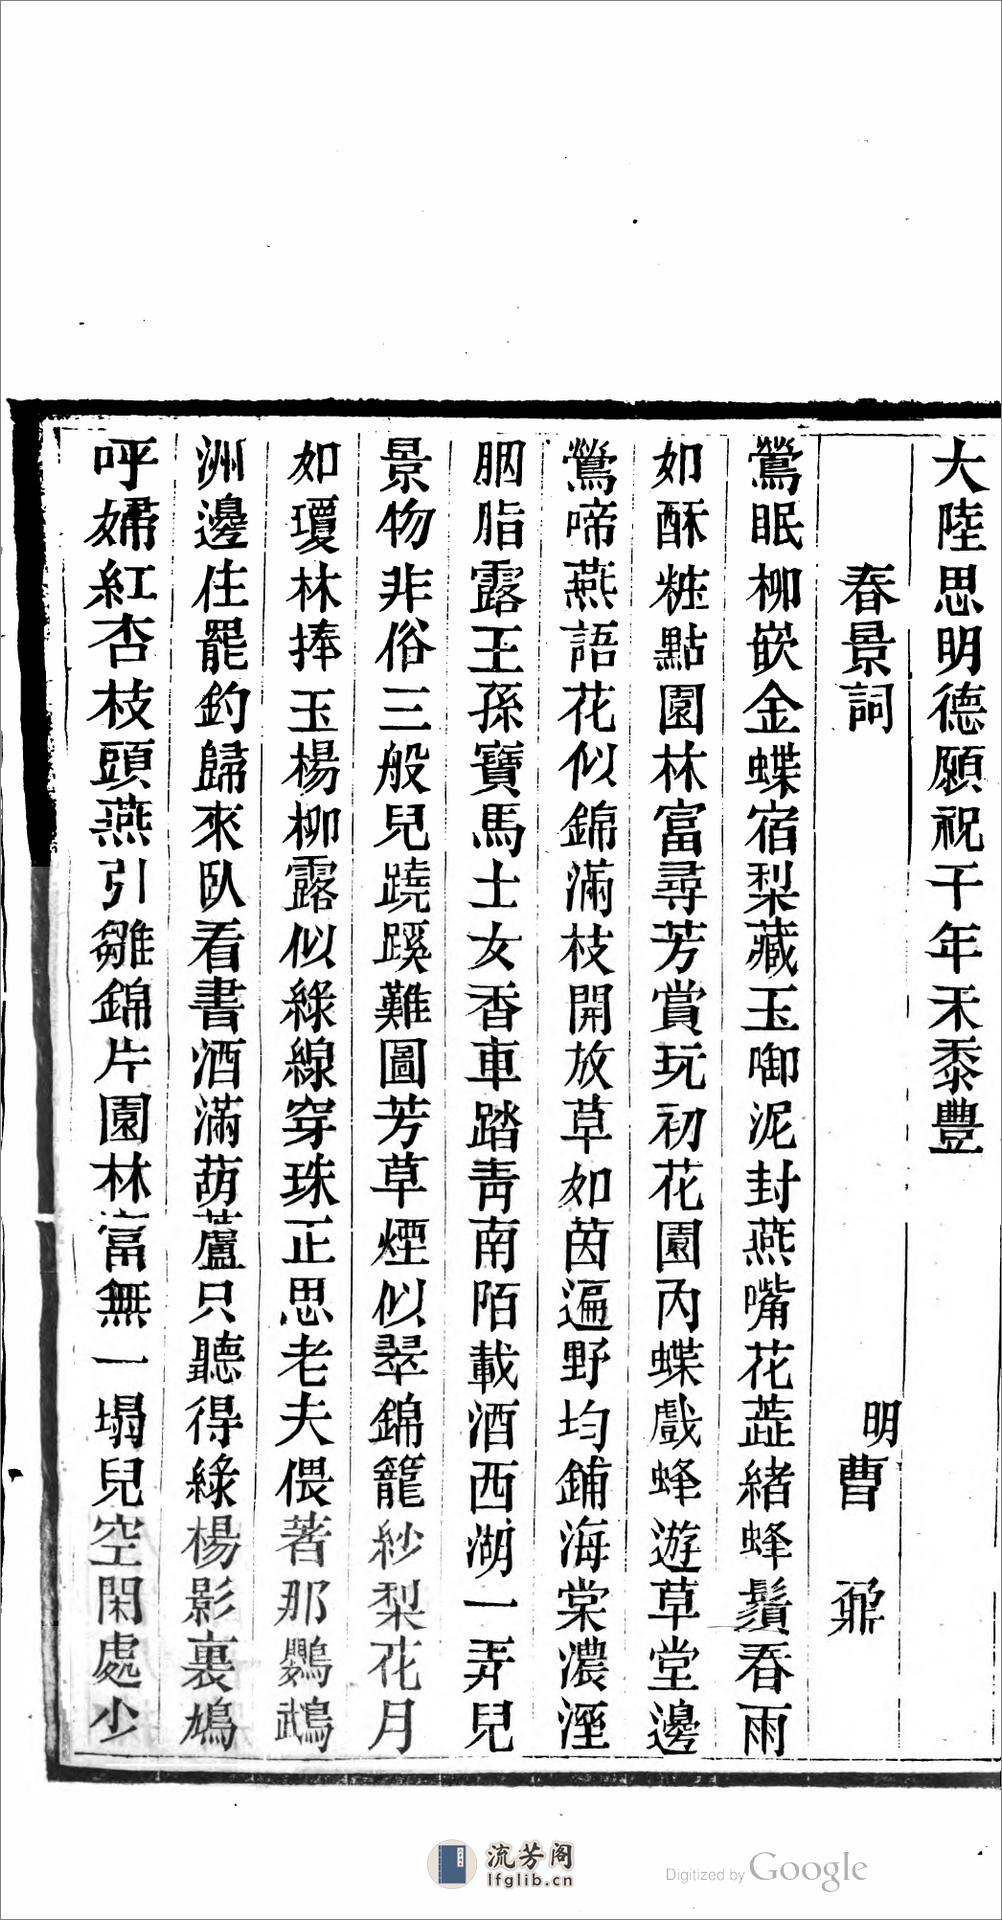 大陸思明德願祝千年禾黍豐
春景詞
明曹鼐
鶯眠柳嵌金蝶宿梨藏玉啣泥封燕嘴花蘂緒蜂鬚春雨
如酥粧點園林富尋芳賞玩初花園內蝶戲蜂遊草堂邊
鶯啼燕語花似錦滿枝開放草如茵遍野均鋪海棠濃溼
胭脂露王孫寶馬士女香車踏靑南陌載酒西湖一弄兒
景物非俗三般兒蹺蹊難圖芳草煙似翠錦籠紗梨花月
如瓊林捧玉楊柳露似綠線穿珠正思老夫偎著那鸚鵡
洲邊住罷釣歸來臥看書酒滿葫蘆只聽得綠楊影裏鳩
呼婦紅杏枝頭燕引雛錦片園林富無一塌兒空閑處少
流芳阁
lfglib.cn
Digitized by Google